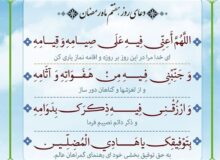 دعای روز هفتم ماه رمضان
اللَّهُمَّ أَعِنِّی فِیهِ عَلَی صِیَامِهِ وَ قِیَامِهِ
ای خدا مرا در این روز بر روزه و اقامه نماز یاری کن
وَ جَنِّبْنِی فِیهِ مِنْ هَفَوَاتِهِ وَ آثَامِهِ
و از لغزشها و گناهان دور ساز
وَ ارْزُقْنِی فِیهِ ذِکْرَکَ بِدَوَامِهِ
و ذکر دائم نصیبم فرما
بِتَوْفِیقِکَ یَا هَادِیَ الْمُضِلِّینَ
به حق توفیق بخشی خود ای رهنمای گمراهان عالم